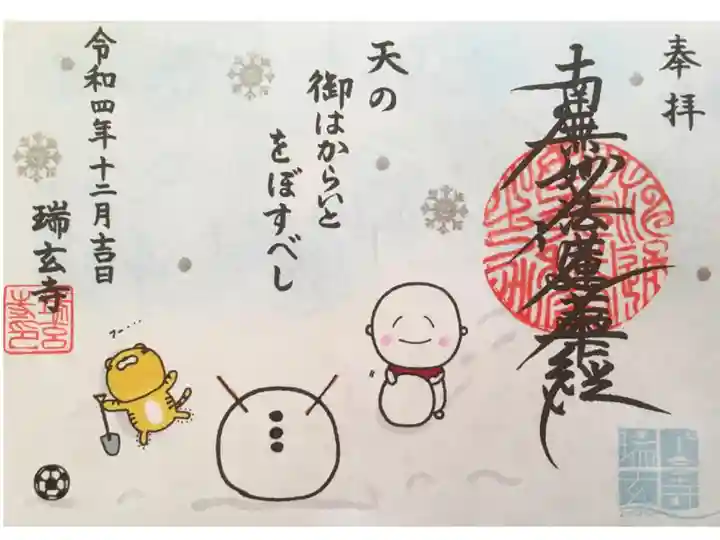 奉拝
南無妙法蓮華経
天の
御はからいと
をぼすべし
令和四年十二月吉日
瑞玄寺
フー…
瑞玄寺